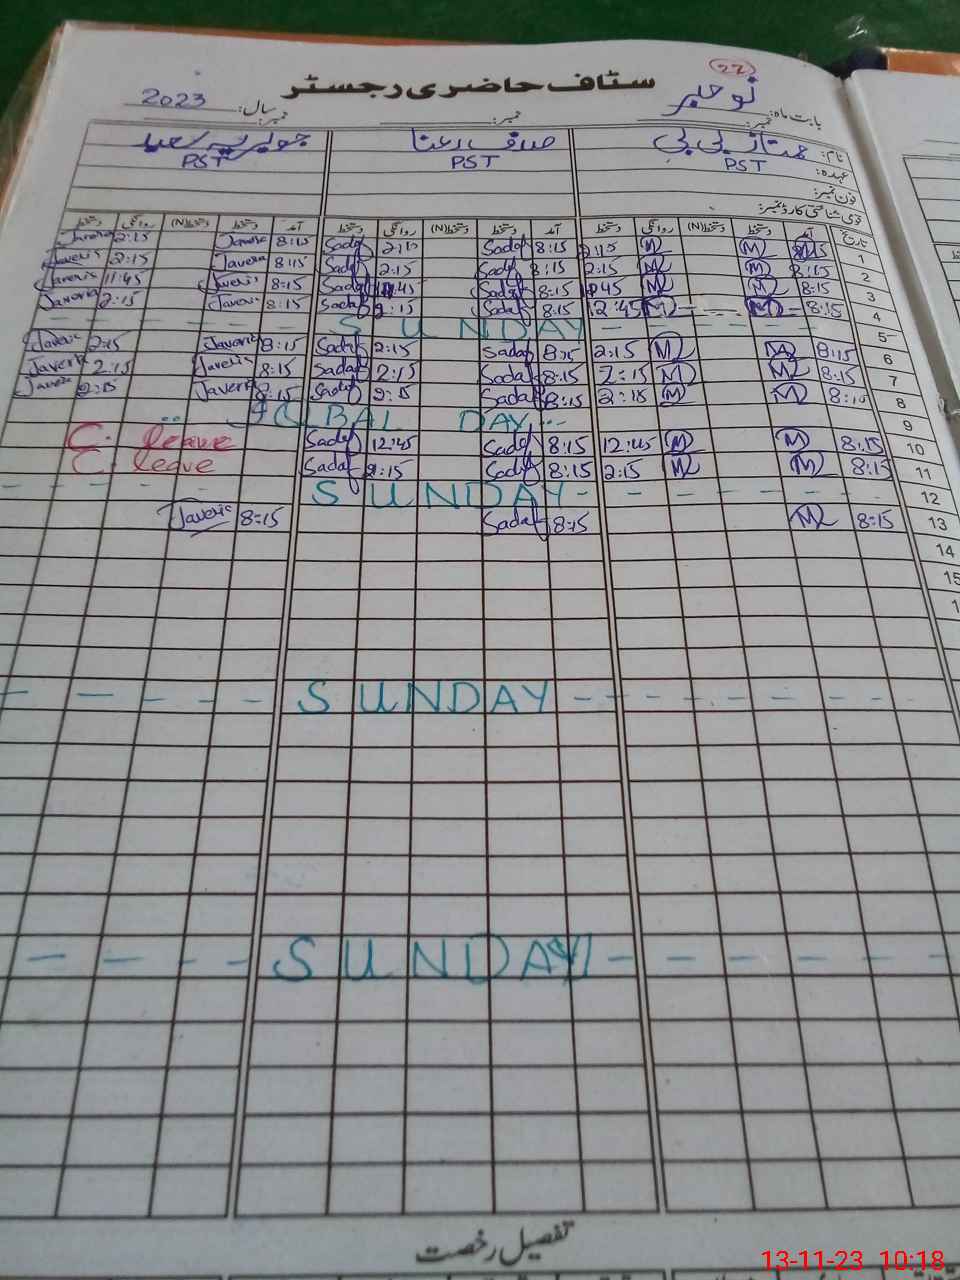 22
سٹاف حاضری رجسٹر
بابت ماہ: نومبر سال: 2023
نمبر: نمبر: نمبر:
نام: ممتاز بی بی صدف رعنا جویریہ سعید
عہدہ: PST PST PST
فون نمبر:
قومی شناختی کارڈ نمبر:
تاریخ آمد دستخط دستخط(N) روانگی دستخط آمد دستخط دستخط(N) روانگی دستخط آمد دستخط دستخط(N) روانگی دستخط
Javeria 2:15 Javeria 8:15 Sadaf 2:15 Sadaf 8:15 2:15 M M 8:15 1
Javeria 2:15 Javeria 8:15 Sadaf 2:15 Sadaf 8:15 2:15 M M 8:15 2
Javeria 11:45 Javeria 8:15 Sadaf 11:45 Sadaf 8:15 M M 8:15 3
Javeria 2:15 Javeria 8:15 Sadaf 2:15 Sadaf 8:15 12:45 M M 8:15 4
SUNDAY 5
Javeria 2:15 Javeria 8:15 Sadaf 2:15 Sadaf 8:15 2:15 M M 8:15 6
Javeria 2:15 Javeria 8:15 Sadaf 2:15 Sadaf 8:15 2:15 M M 8:15 7
Javeria 2:15 Javeria 8:15 Sadaf 2:15 Sadaf 8:15 2:15 M M 8:15 8
IQBAL DAY 9
C. leave Sadaf 12:45 Sadaf 8:15 12:45 M M 8:15 10
C. leave Sadaf 2:15 Sadaf 8:15 2:15 M M 8:15 11
SUNDAY 12
Javeria 8:15 Sadaf 8:15 M 8:15 13
14
15
SUNDAY
SUNDAY
تفصیل رخصت
13-11-23 10:18